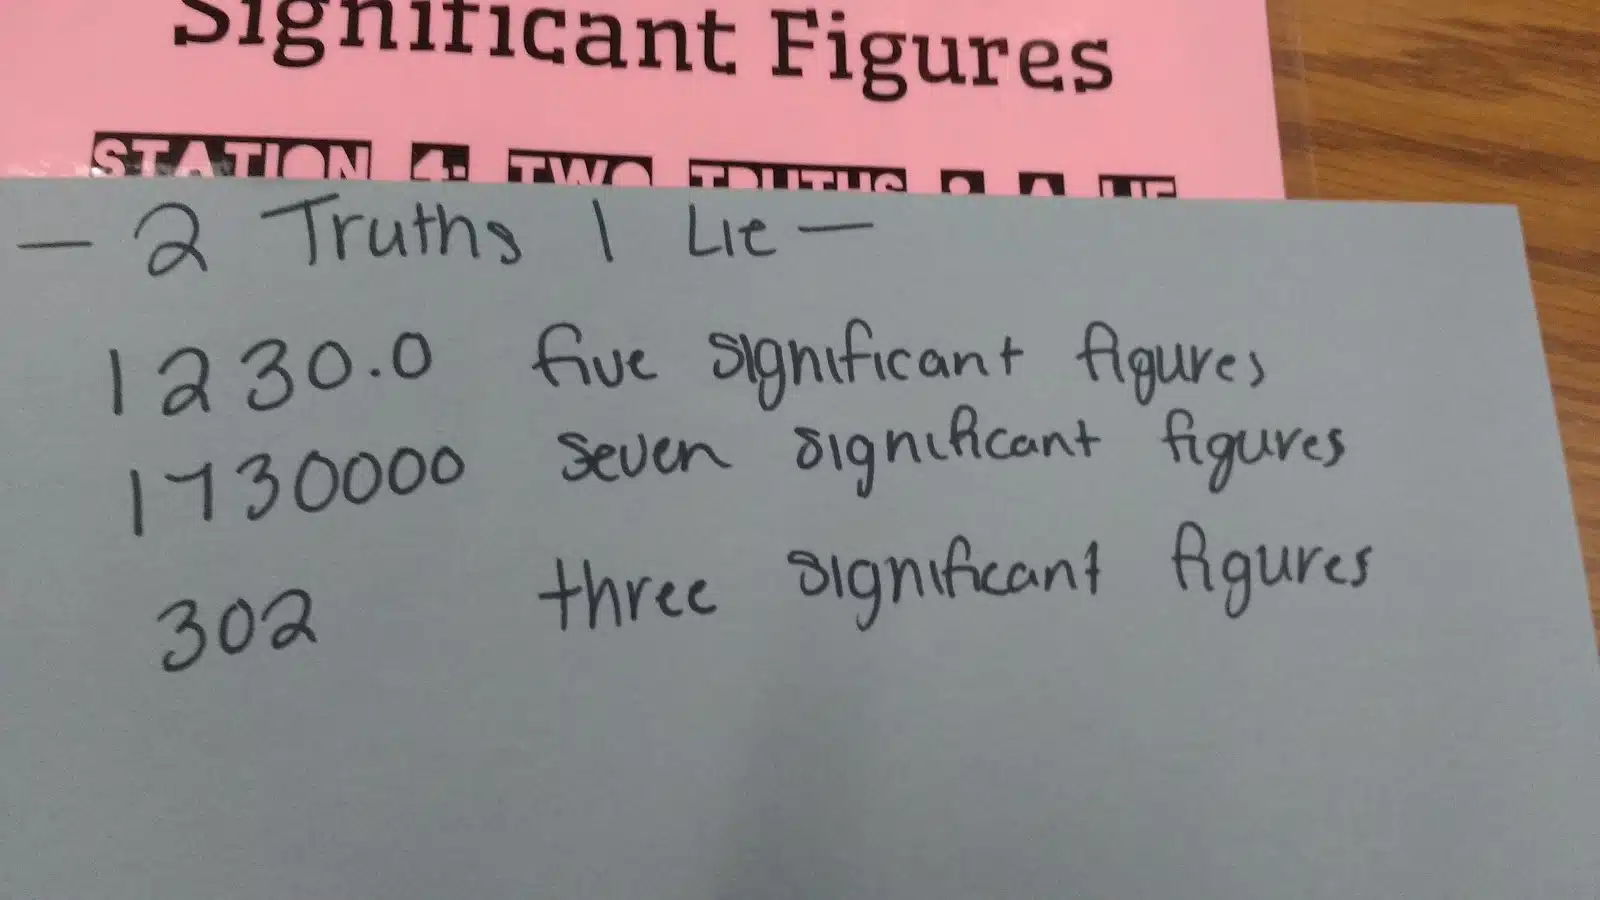 Significant Figures
STATION 4: TWO TRUTHS & A LIE
— 2 Truths 1 Lie —
1230.0 five significant figures
1730000 seven significant figures
302 three significant figures